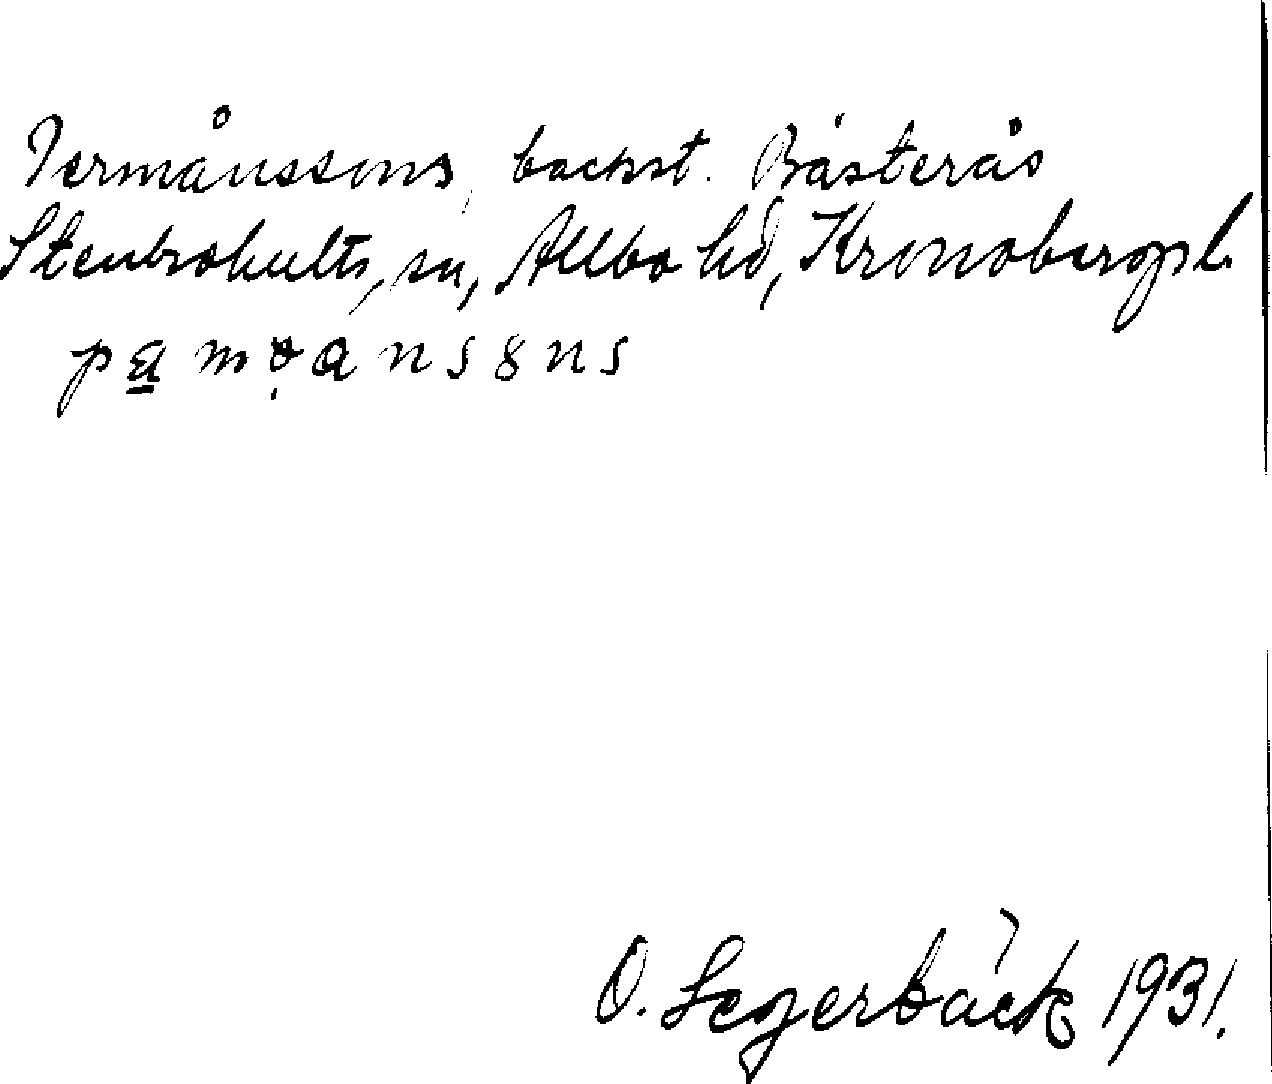 Permånssons, backst. Bästerås
Stenbrohults, sn, Allbo hd, Kronobergs l.
O. Segerbäck 1931.